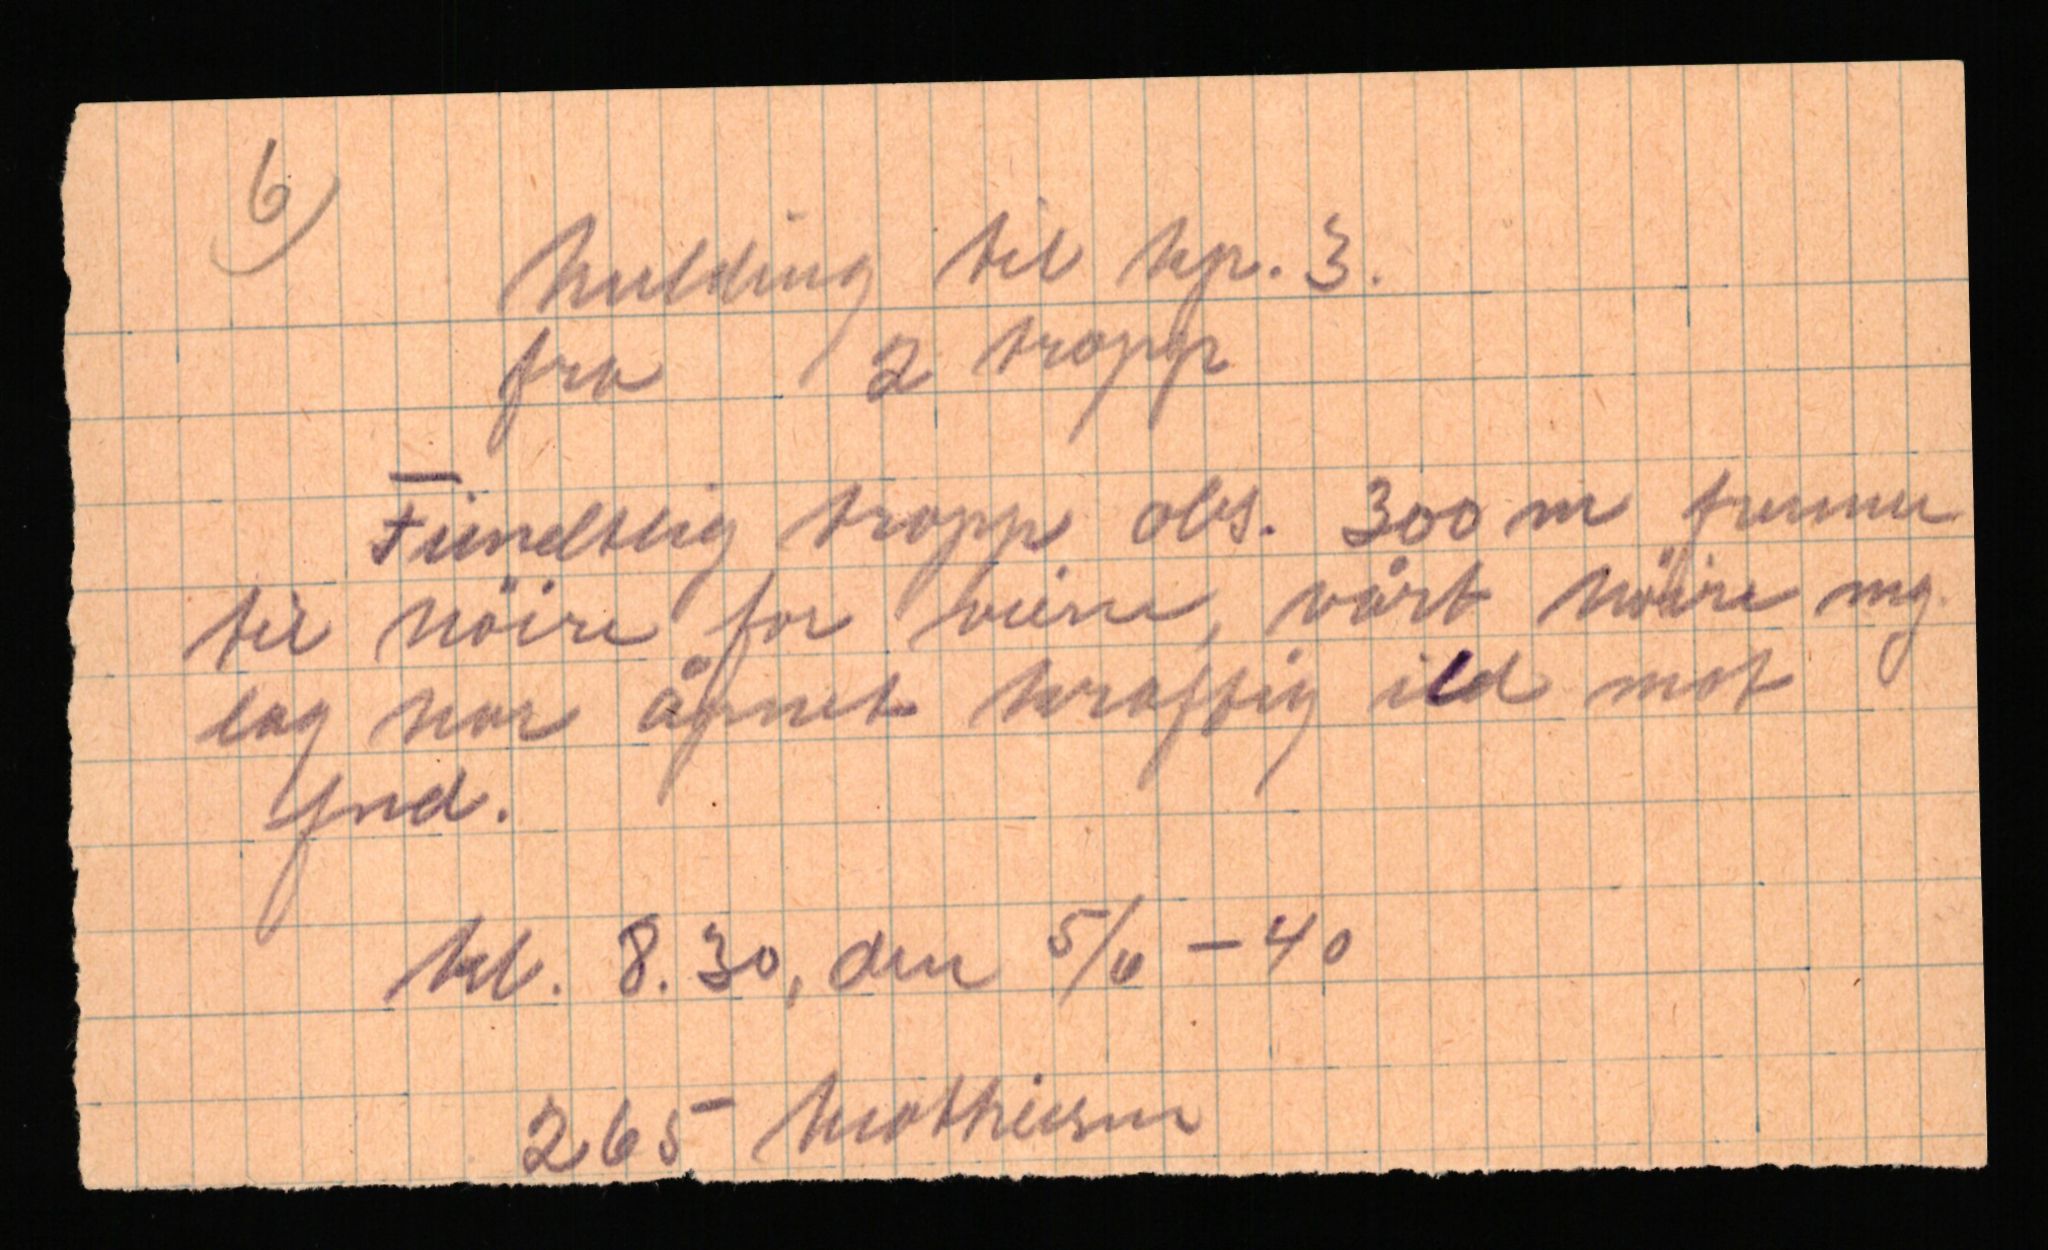 6)
Melding til kp. 3.
fra 2 tropp
Fiendtlig tropp obs. 300 m fremme
til höire for veien, vårt höire mg.
lag har åpnet kraftig ild mot
fnd.
kl. 8.30, den 5/6 - 40
265 Mathiesen